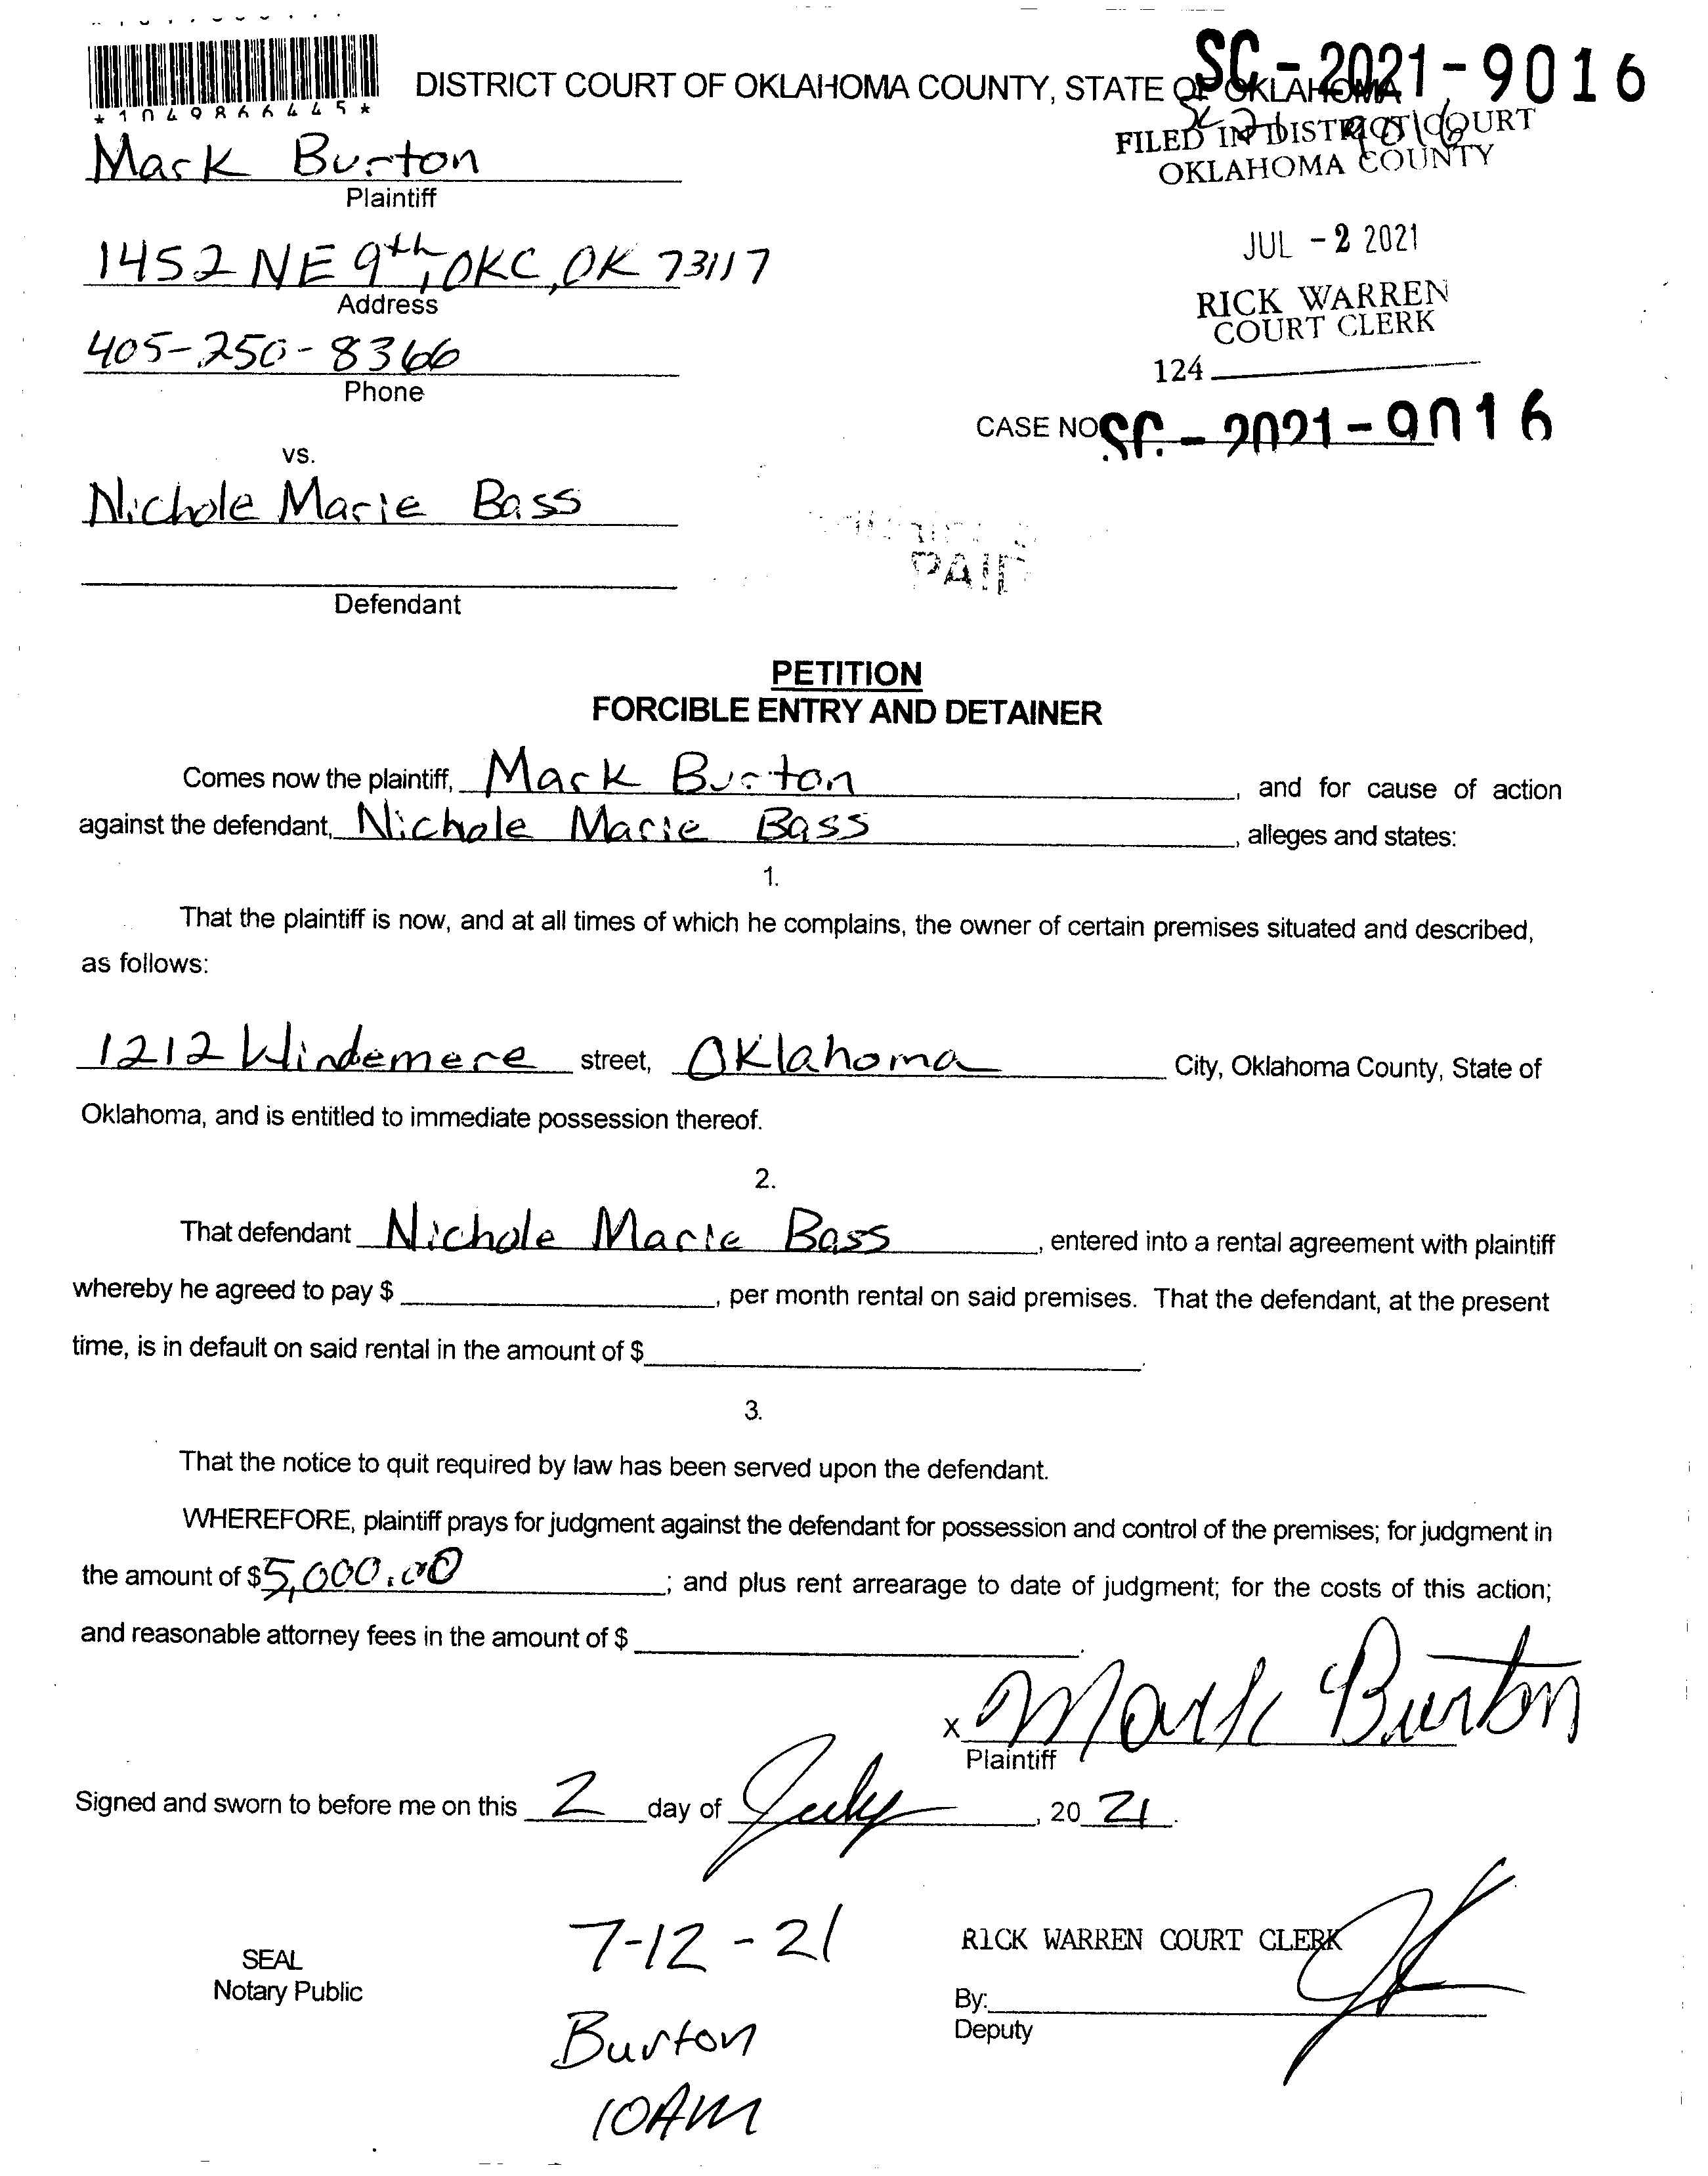 *1049866445*
SC-2021-9016
DISTRICT COURT OF OKLAHOMA COUNTY, STATE OF OKLAHOMA
FILED IN DISTRICT COURT
OKLAHOMA COUNTY
Mark Burton
Plaintiff
JUL -2 2021
1452 NE 9th, OKC, OK 73117
Address
RICK WARREN
COURT CLERK
405-250-8366
Phone
124
CASE NO SC-2021-9016
vs.
Nichole Marie Bass
PAID
Defendant
PETITION
FORCIBLE ENTRY AND DETAINER
Comes now the plaintiff, Mark Burton, and for cause of action
against the defendant, Nichole Marie Bass, alleges and states:
1.
That the plaintiff is now, and at all times of which he complains, the owner of certain premises situated and described,
as follows:
1212 Windemere street, Oklahoma City, Oklahoma County, State of
Oklahoma, and is entitled to immediate possession thereof.
2.
That defendant Nichole Marie Bass, entered into a rental agreement with plaintiff
whereby he agreed to pay $, per month rental on said premises. That the defendant, at the present
time, is in default on said rental in the amount of $.
3.
That the notice to quit required by law has been served upon the defendant.
WHEREFORE, plaintiff prays for judgment against the defendant for possession and control of the premises; for judgment in
the amount of $5,000.00; and plus rent arrearage to date of judgment; for the costs of this action;
and reasonable attorney fees in the amount of $.
x Mark Burton
Plaintiff
Signed and sworn to before me on this 2 day of July, 20 21.
7-12-21
RICK WARREN COURT CLERK
SEAL
Notary Public
By:
Deputy
Burton
10AM